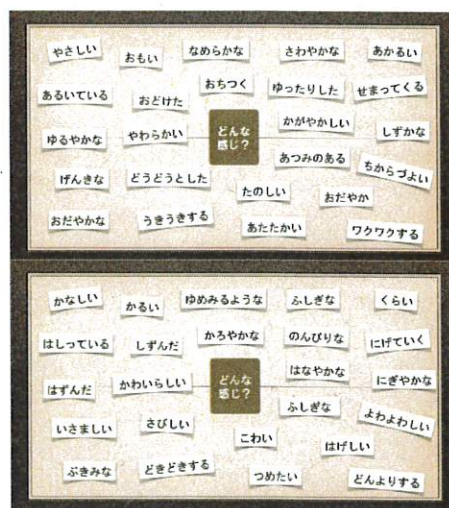 やさしい
おもい
なめらかな
さわやかな
あかるい
あるいている
おどけた
おちつく
ゆったりした
せまってくる
ゆるやかな
やわらかい
どんな
感じ?
かがやかしい
しずかな
あつみのある
げんきな
どうどうとした
たのしい
おだやか
ちからづよい
おだやかな
うきうきする
あたたかい
ワクワクする
かなしい
かるい
ゆめみるような
ふしぎな
くらい
はしっている
しずんだ
かろやかな
のんびりな
にげていく
はずんだ
かわいらしい
どんな
感じ?
はなやかな
にぎやかな
ふしぎな
いさましい
さびしい
こわい
はげしい
よわよわしい
ぶきみな
どきどきする
つめたい
どんよりする